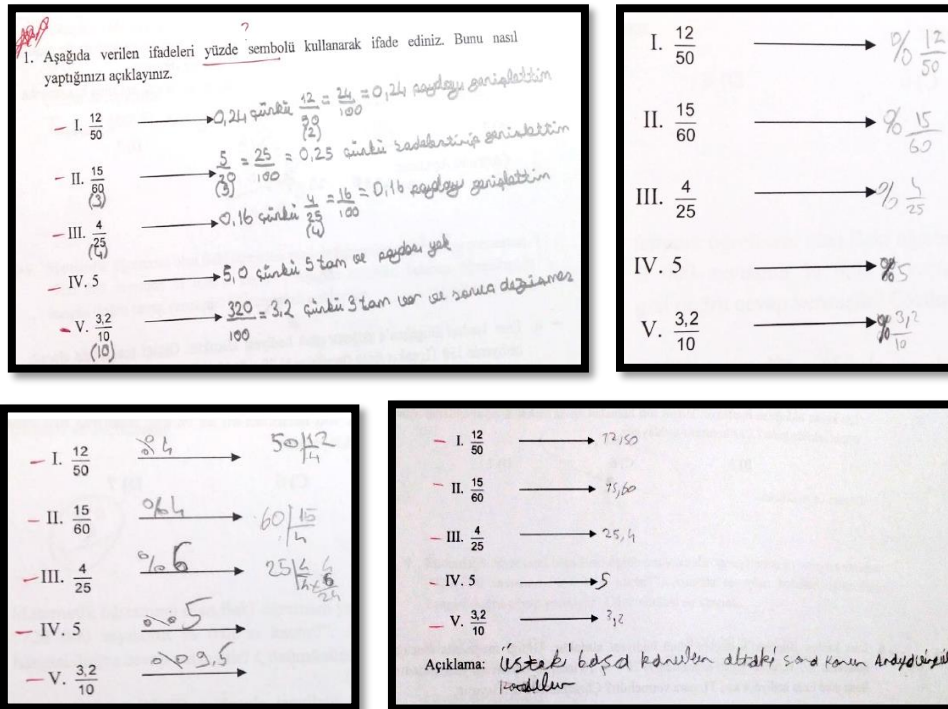 ?
1. Aşağıda verilen ifadeleri yüzde sembolü kullanarak ifade ediniz. Bunu nasıl
yaptığınızı açıklayınız.
I. 12/50 → 0,24 çünkü 12/50 = 24/100 = 0,24 paydayı genişlettim
(2)
II. 15/60 → 5/20 = 25/100 = 0,25 çünkü sadeleştirip genişlettim
(3) (5)
III. 4/25 → 0,16 çünkü 4/25 = 16/100 = 0,16 paydayı genişlettim
(4) (4)
IV. 5 → 5,0 çünkü 5 tam ve paydası yok
V. 3,2/10 → 320/100 = 3,2 çünkü 3 tam var ve sonuç değişmez
(10)
I. 12/50 → % 12/50
II. 15/60 → % 15/60
III. 4/25 → % 4/25
IV. 5 → %5
V. 3,2/10 → % 3,2/10
I. 12/50 %4 → 50 12 4
II. 15/60 %4 → 60 15 4
III. 4/25 %6 → 25 4
IV. 5 %5 →
V. 3,2/10 %9,5 →
I. 12/50 → 12,50
II. 15/60 → 15,60
III. 4/25 → 25,4
IV. 5 → 5
V. 3,2/10 → 3,2
Açıklama: üsteki başa konulan alttaki sona konan